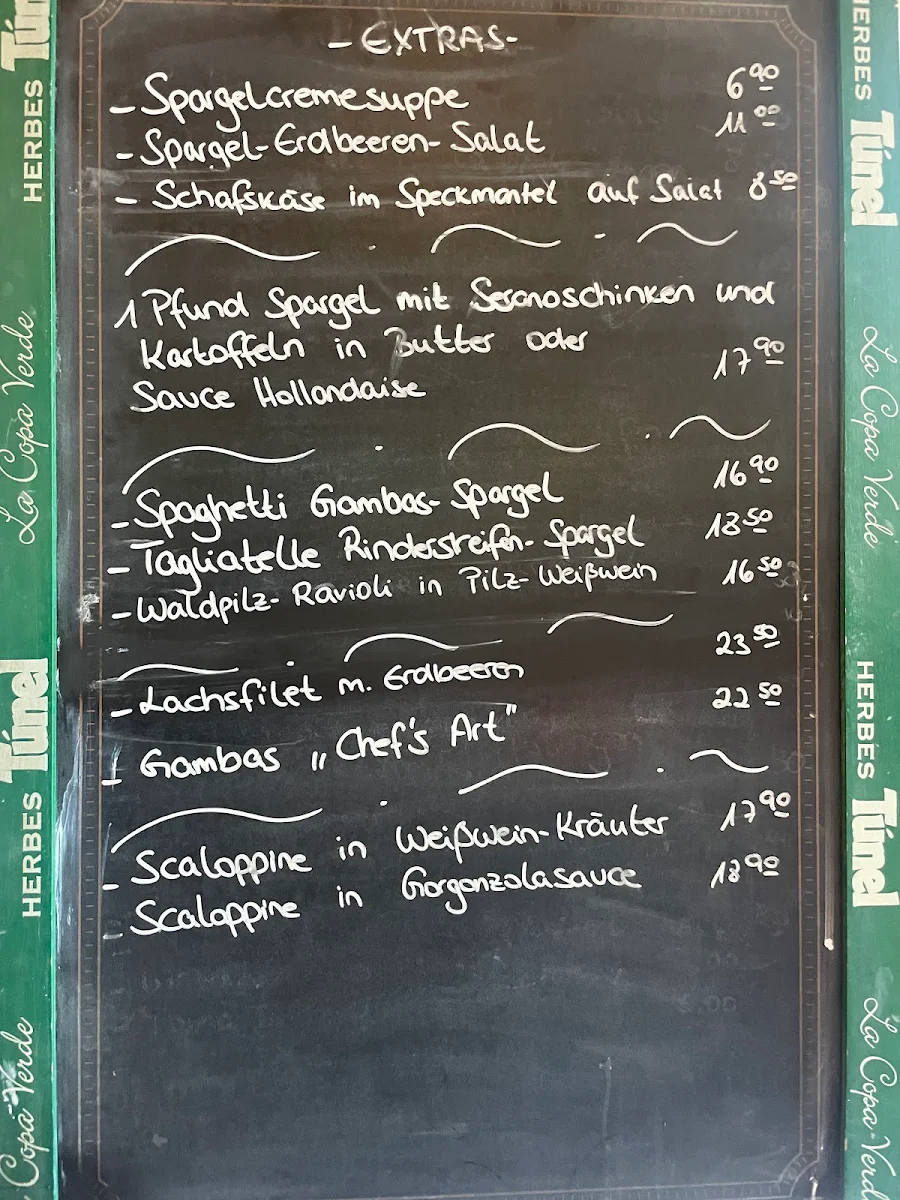 - EXTRAS -
- Spargelcremesuppe 6 90
- Spargel-Erdbeeren-Salat 11 00
- Schafskäse im Speckmantel auf Salat 8 50
1 Pfund Spargel mit Seranoschinken und
Kartoffeln in Butter oder
Sauce Hollandaise 17 90
- Spaghetti Gambas-Spargel 16 90
- Tagliatelle Rinderstreifen-Spargel 18 50
- Waldpilz-Ravioli in Pilz-Weißwein 16 50
- Lachsfilet m. Erdbeeren 23 50
- Gambas „Chef's Art" 22 50
- Scaloppine in Weißwein-Kräuter 17 90
- Scaloppine in Gorgonzolasauce 18 90
HERBES Túnel
La Copa Verde
HERBES Túnel
Copa Verde
HERBES Túnel
La Copa Verde
HERBES Túnel
La Copa Verde